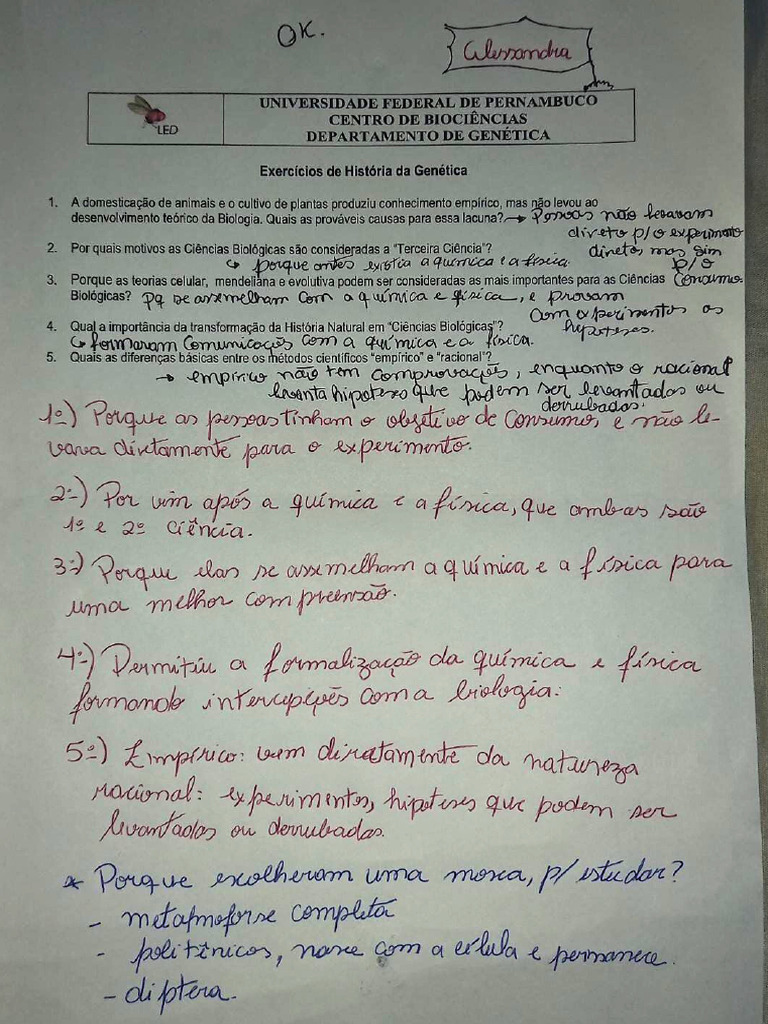 OK.
Alessandra
LED
UNIVERSIDADE FEDERAL DE PERNAMBUCO
CENTRO DE BIOCIÊNCIAS
DEPARTAMENTO DE GENÉTICA
Exercícios de História da Genética
1. A domesticação de animais e o cultivo de plantas produziu conhecimento empírico, mas não levou ao
desenvolvimento teórico da Biologia. Quais as prováveis causas para essa lacuna? → Pessoas não levavam
direto p/ o experimento
diretos mas sim
p/ o
Consumo.
2. Por quais motivos as Ciências Biológicas são consideradas a "Terceira Ciência"?
↳ porque antes existia a química e a física.
3. Porque as teorias celular, mendeliana e evolutiva podem ser consideradas as mais importantes para as Ciências
Biológicas? Pq se assemelham com a química e física, e provam
com experimentos as
hipoteses.
4. Qual a importância da transformação da História Natural em "Ciências Biológicas"?
↳ formaram comunicaçãos com a química e a física.
5. Quais as diferenças básicas entre os métodos científicos "empírico" e "racional"?
→ empírico não tem comprovações, enquanto o racional
levanta hipoteses que podem ser levantadas ou
derrubadas.
1º) Porque as pessoas tinham o objetivo de Consumo, e não le-
vava diretamente para o experimento.
2º) Por vim após a química e a física, que ambas são
1º e 2º ciência.
3º) Porque elas se assemelham a química e a física para
uma melhor compreensão.
4º) Permitiu a formalização da química e física
formando intercepções com a biologia.
5º) Empírico: vem diratamente da natureza
racional: experimentos, hipoteses que podem ser
levantadas ou derrubadas.
* Porque escolheram uma mosca, p/ estudar?
- metapmoforse completa
- politênicos, nasce com a célula e permanece.
- diptera.